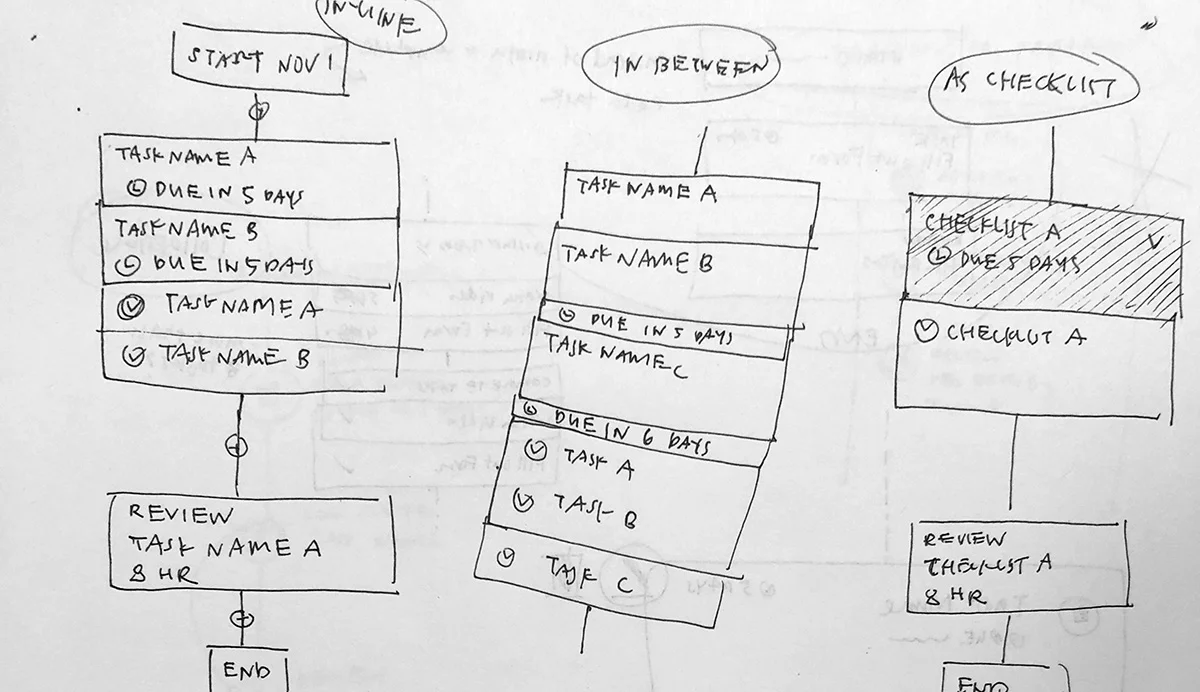 IN-LINE
START NOV 1
TASK NAME A
DUE IN 5 DAYS
TASK NAME B
DUE IN 5 DAYS
TASK NAME A
TASK NAME B
REVIEW
TASK NAME A
8 HR
END
IN BETWEEN
TASK NAME A
TASK NAME B
DUE IN 5 DAYS
TASK NAME C
DUE IN 6 DAYS
TASK A
TASK B
TASK C
AS CHECKLIST
CHECKLIST A
DUE 5 DAYS
CHECKLIST A
REVIEW
CHECKLIST A
8 HR
END